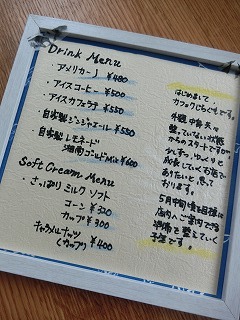 Drink Menu
・アメリカーノ ¥450
・アイスコーヒー ¥500
・アイスカフェラテ ¥550
・自家製ジンジャエール ¥550
・自家製レモネード
湘南ゴールドMix ¥600
Soft Cream Menu
・さっぱりミルクソフト
コーン ¥320
カップ ¥300
キャラメルナッツ
(カップ) ¥400
はじめまして。
です。
外観、中身共に
整っていない状態
からのスタートですが
少しずつ、ゆっくりと
成長していくお店で
ありたいと思って
おります。
5月中旬頃を目標に
店内へご案内できる
準備を整えていく
予定です。